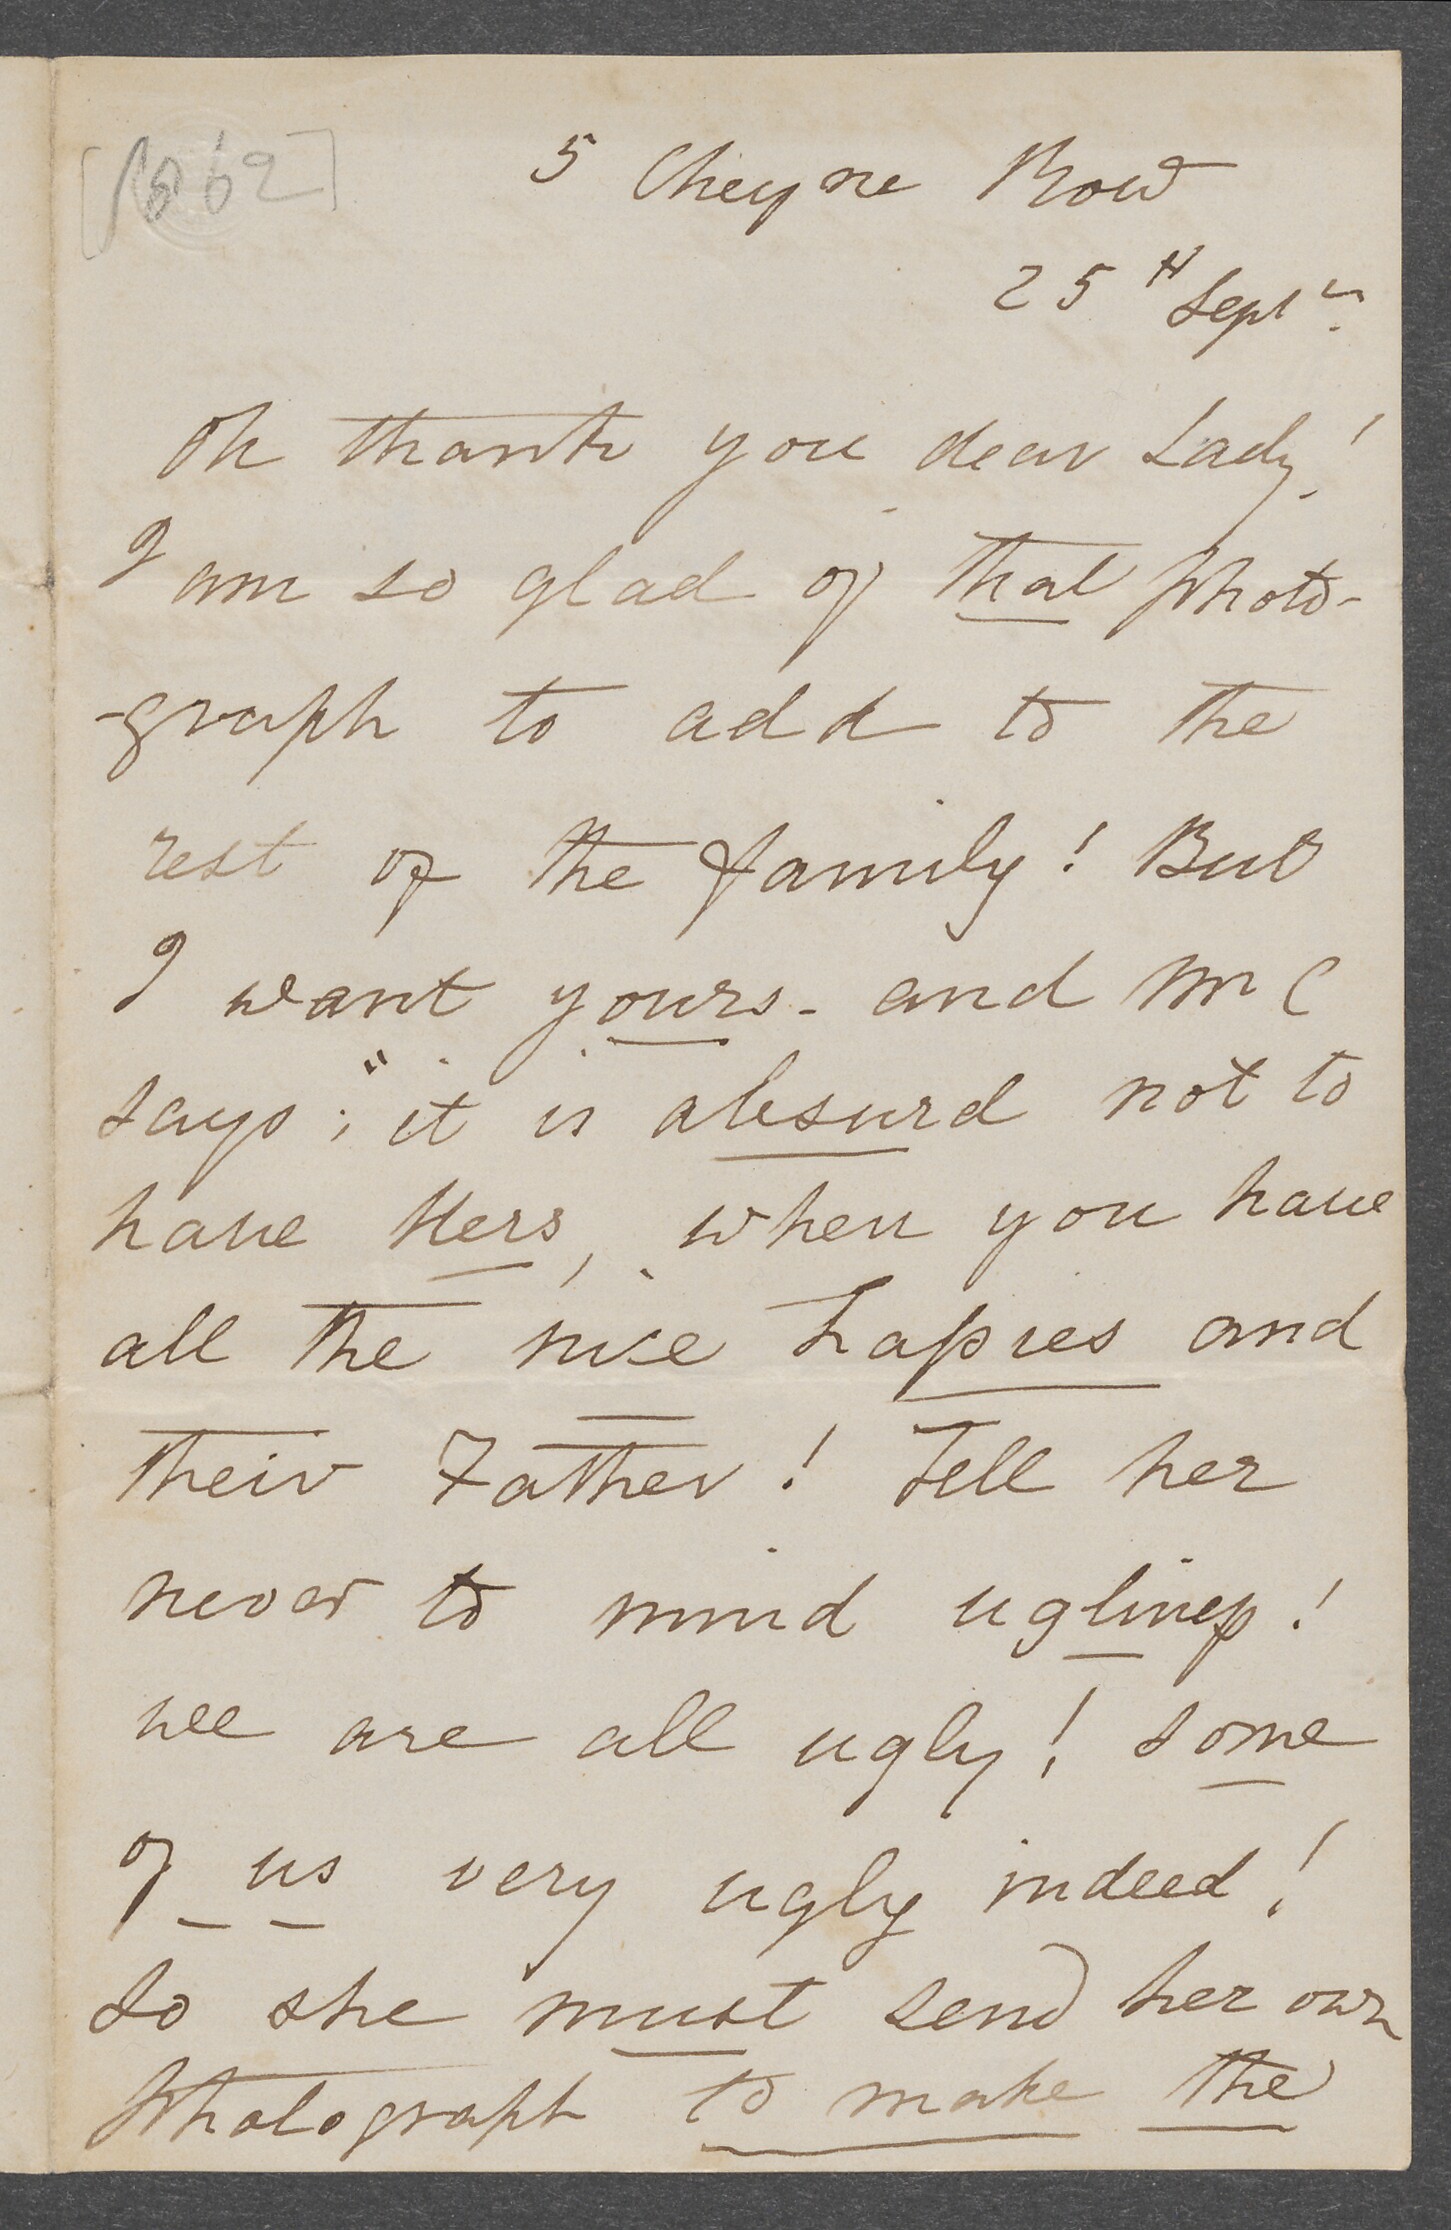 [1862]
5 Cheyne Row
25th Septr.
Oh thank you dear Lady!
I am so glad of that photo-
-graph to add to the
rest of the family! But
I want yours - and Mr C
says; "it is absurd not to
have Hers, when you have
all the nice Lassies and
their Father! Tell her
never to mind ugliness!
we are all ugly! some
of us very ugly indeed!
So she must send her own
Photograph to make the